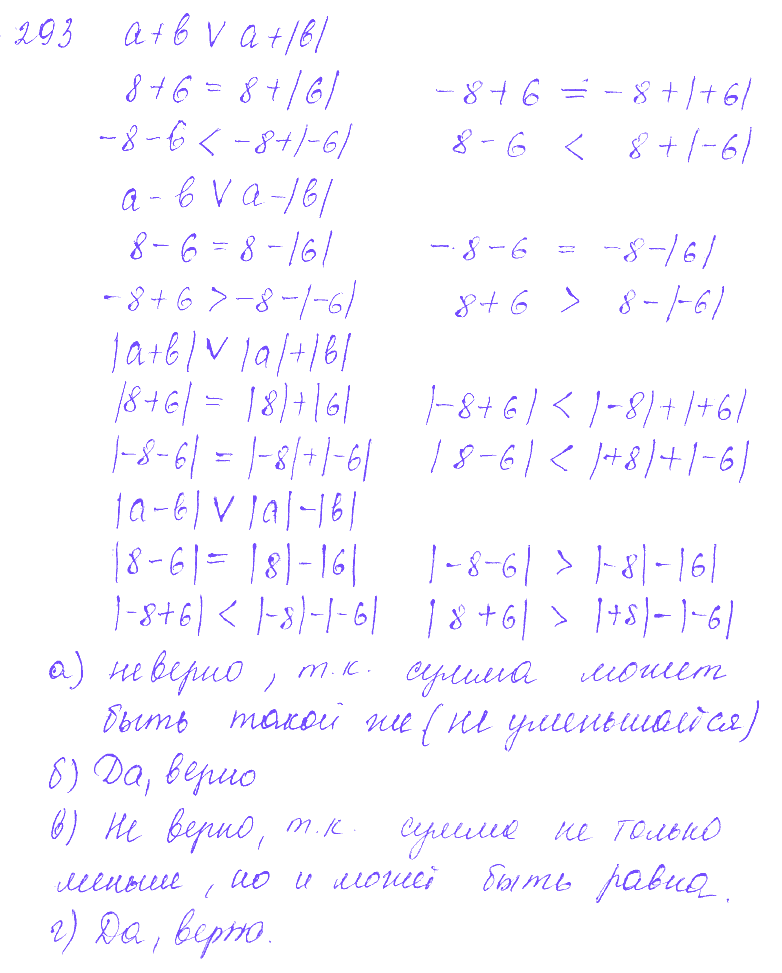 293 a+b V a+|b|
8+6 = 8+|6| -8+6 = -8+|+6|
-8-6 < -8+|-6| 8-6 < 8+|-6|
a-b V a-|b|
8-6 = 8-|6| -8-6 = -8-|6|
-8+6 > -8-|-6| 8+6 > 8-|-6|
|a+b| V |a|+|b|
|8+6| = |8|+|6| |-8+6| < |-8|+|+6|
|-8-6| = |-8|+|-6| |8-6| < |+8|+|-6|
|a-b| V |a|-|b|
|8-6| = |8|-|6| |-8-6| > |-8|-|6|
|-8+6| < |-8|-|-6| |8+6| > |+8|-|-6|
а) неверно, т.к. сумма может
быть такой же (не уменьшается)
б) Да, верно
в) Не верно, т.к. сумма не только
меньше, но и может быть равна.
г) Да, верно.